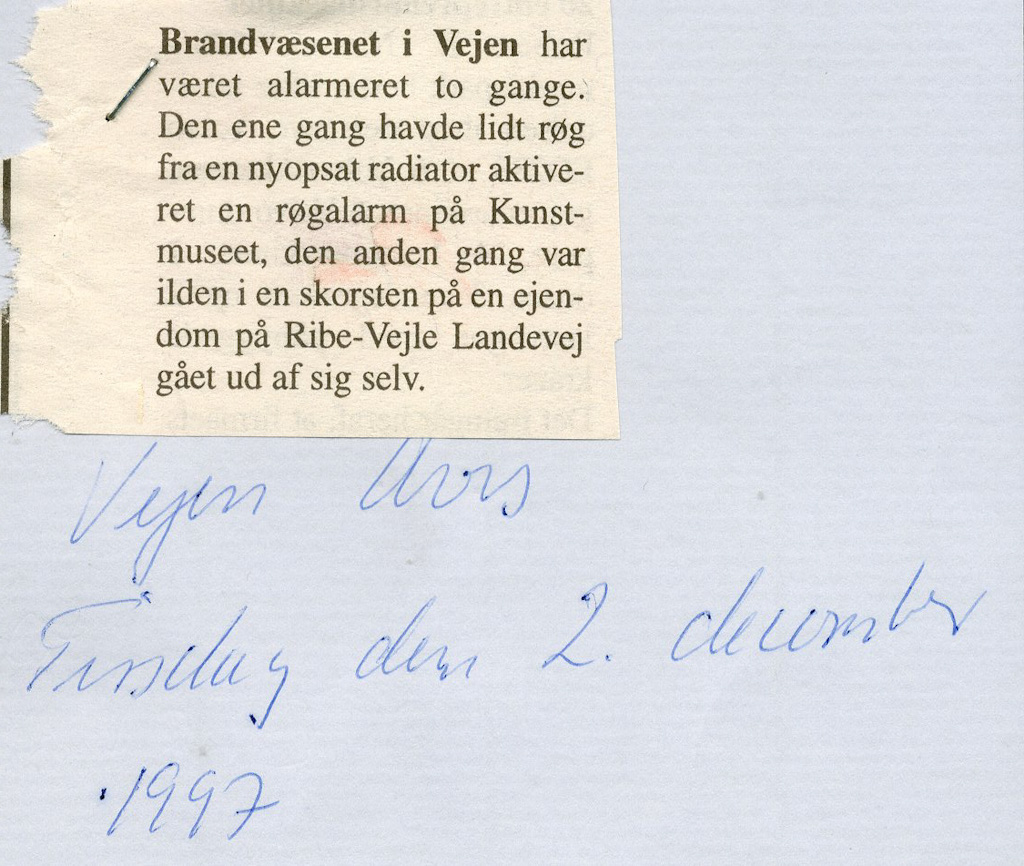 Brandvæsenet i Vejen har
været alarmeret to gange.
Den ene gang havde lidt røg
fra en nyopsat radiator aktive-
ret en røgalarm på Kunst-
museet, den anden gang var
ilden i en skorsten på en ejen-
dom på Ribe-Vejle Landevej
gået ud af sig selv.
Vejen Avis
Tirsdag den 2. december
1997